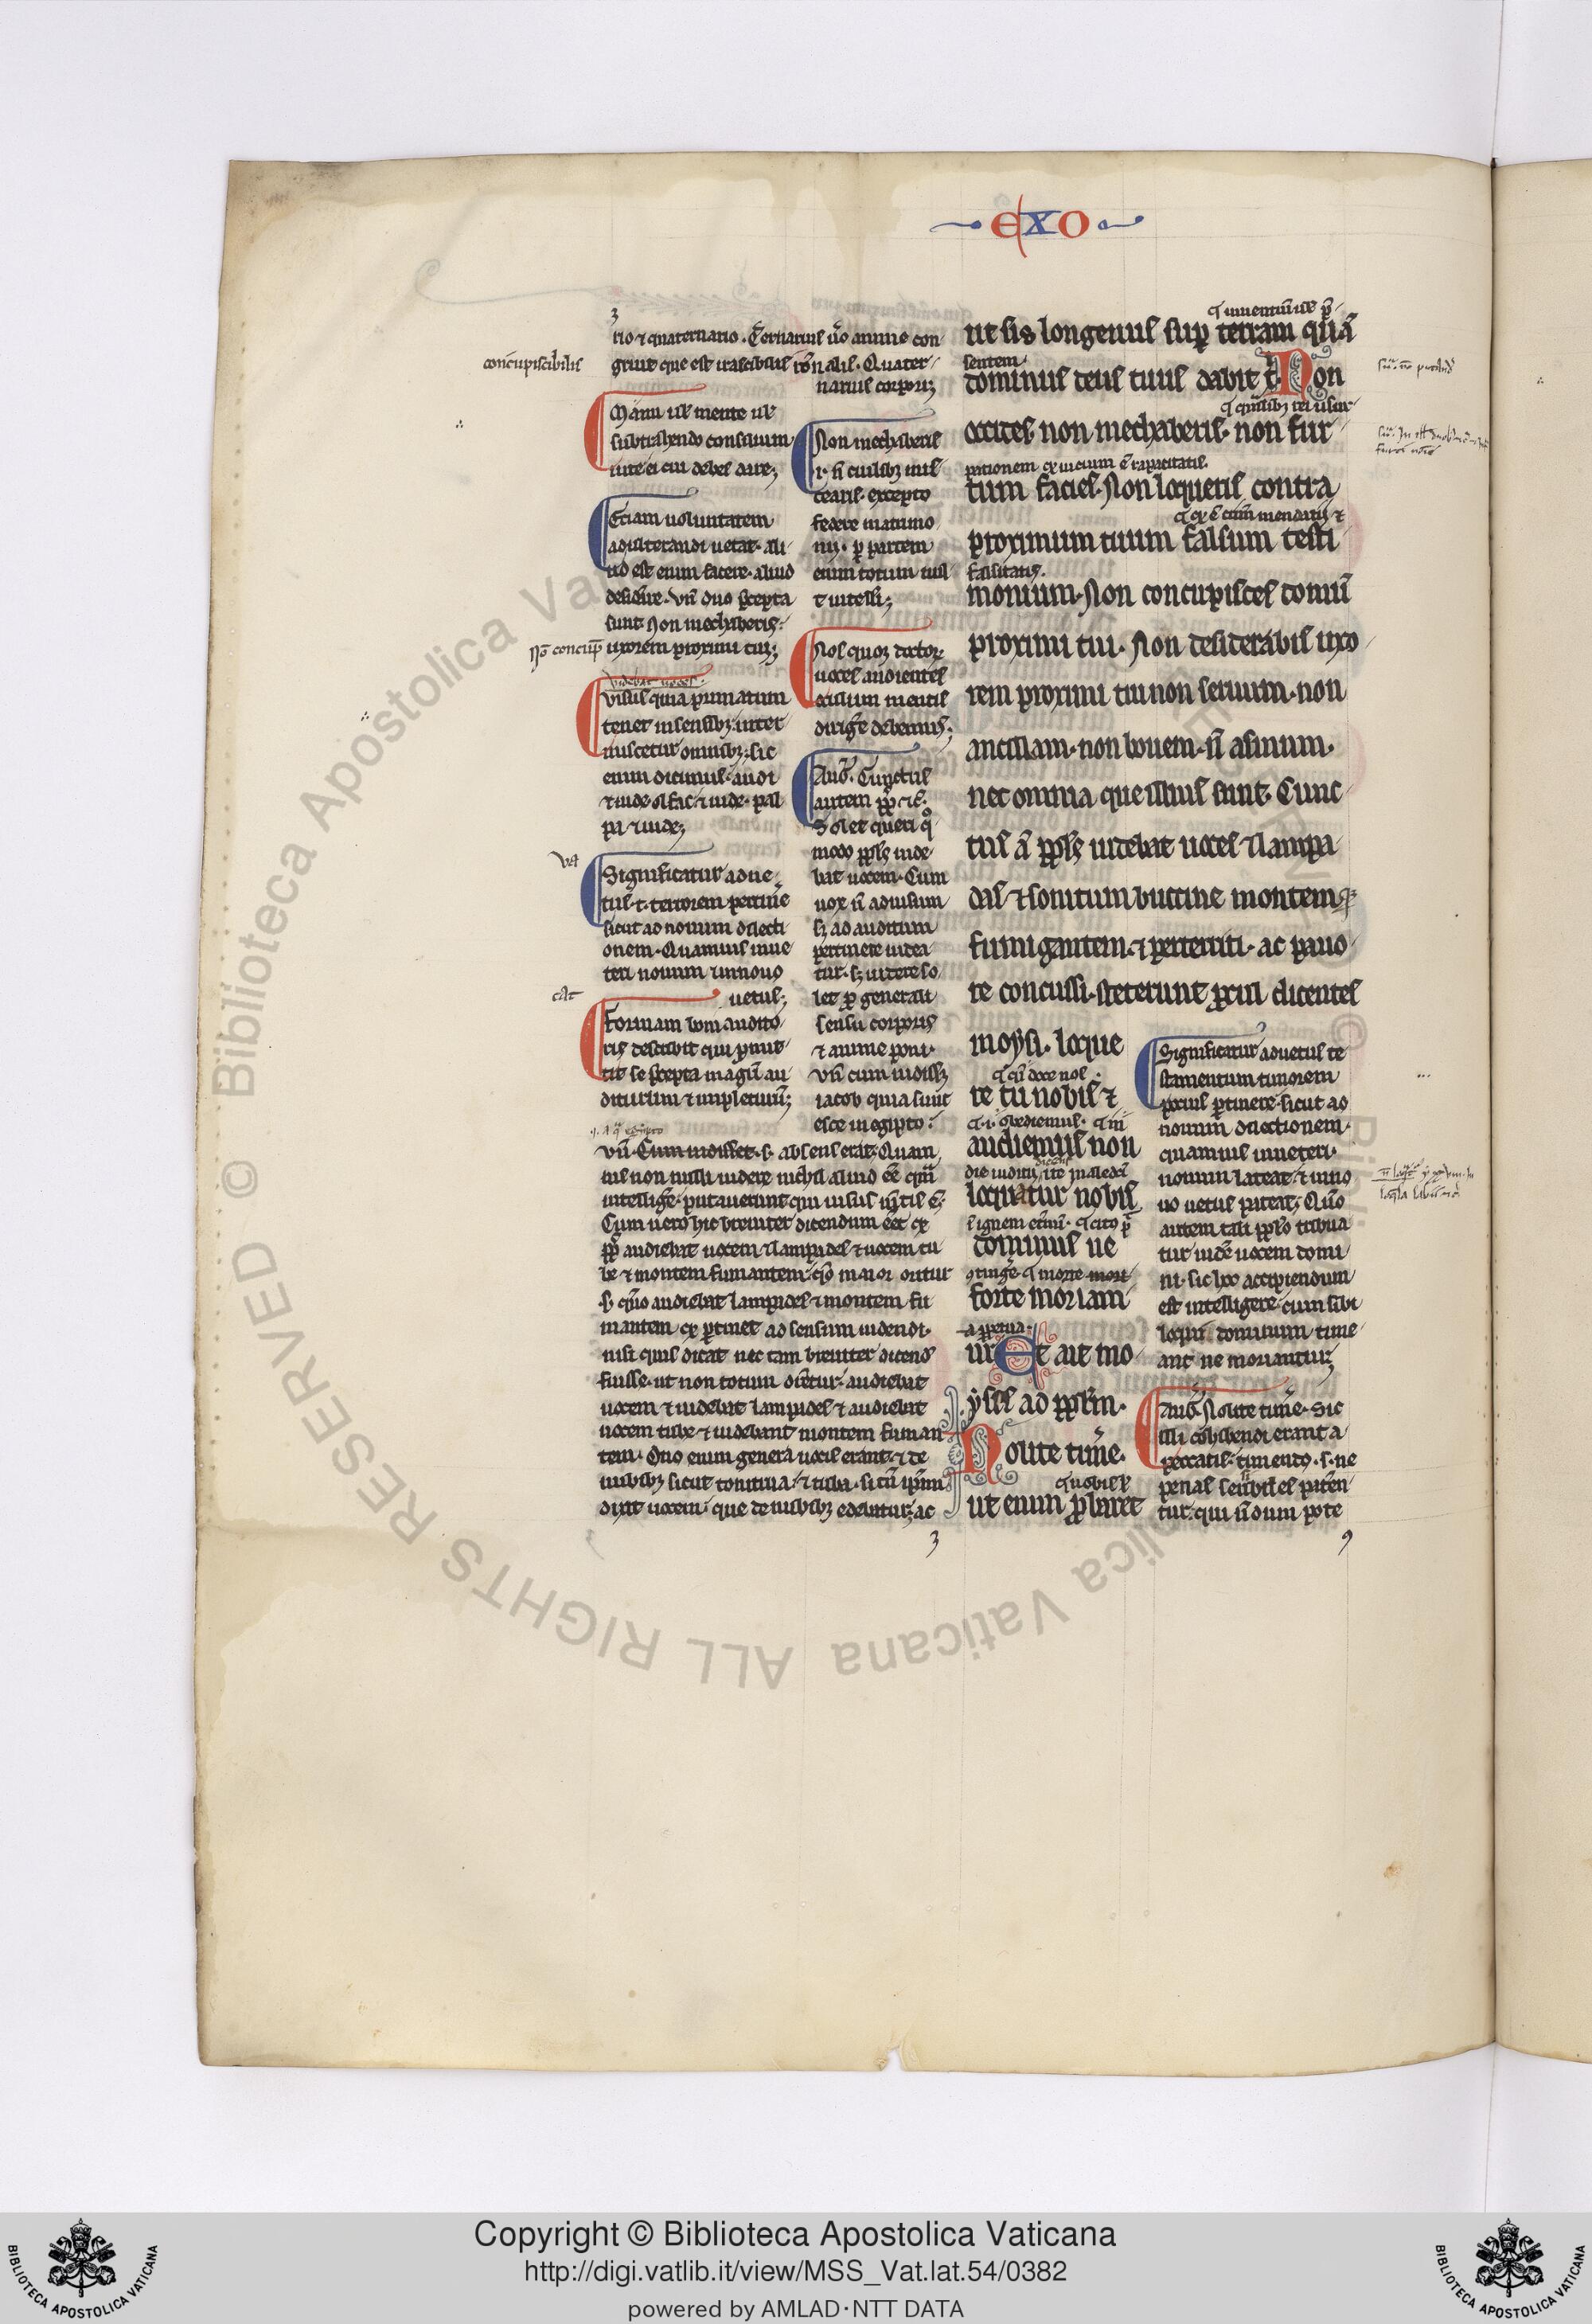 EXO
rio ⁊ quaternario. Ternarius ũo anime con
concupiscibilis
grue que est irascibilis rõnalis. Quater
narius corporis
Manu uel mente uel
subtrahendo consilium
uite ei cui debes dare;
Etiam uoluntatem
adulterandi uetat. ali
ud est enim facere. aliud
desiderare. Vñ duo p̄cepta
sunt. Non mechaberis.
Nõ concup̄
uxorem proximi tui;
videbat uoces.
Visus quia primatum
tenet in sensibȝ inter
miscetur omnibȝ. sic
enim dicimus. audi
⁊ uide. olfac ⁊ uide. pal
pa ⁊ uide;
Significatur ad ue
tus. t. terrorem pertinẽ
sicut ad nouum dilecti
onem. Quamuis in ue
teri nouum ⁊ in nouo
uetus;
Formam boni audito
ris describit qui p̱mit
tit se p̄cepta magr̃i au
diturum ⁊ impleturũ;
Non mechaberis
.i. ñ cuilibȝ mis
cearis. excepto
federe matrimo
nij. ꝑ partem
enim totum ius
t intelli;
Nos quoȝ doctoꝝ
uoces audientes
oculum mentis
dirigẽ debemus;
Aug̃. Cunctus
autem ꝓp̃ ⁊ c̃.
Solet queri qͦ
modo ppl̃s uide
bat uocem. Cum
uox ñ ad uisum
sȝ ad auditum
pertinere uidea
tur. sȝ uidere so
let ꝓ generali
sensu corporis
⁊ anime poni.
Vñ cum uidissȝ
iacob quia sunt
esce in egipto.
Vñ. Cum uidisset. s. absens erat. Quam
uis non nulli uidere nichil aliud cẽ quã
intelligẽ. putauerunt qui uisus m̃tis ẽ.
Cum uero hic breuiter dicendum eẽt qꝫ
pp̃s audiebat uocem ⁊ lampades ⁊ uocem tu
be ⁊ montem fumantem. qͦ maior oritur
.s. qũo audiebat lampades ⁊ montem fu
mantem qꝫ ꝑtinet ad sensum uidendi.
nisi quis dicat nec tam breuiter dicend̃
fuisse. ut non totum dicẽtur. audiebat
uocem ⁊ uidebat lampades ⁊ audiebat
uocem tube ⁊ uidebant montem fuman
tem. Duo enim genera uocis erant. ⁊ de
nubibȝ sicut tonitrua. ⁊ tuba. si tũ ip̃am
dixit uocem. que de nubibȝ edebatur. ac
¶ inuentũ uel p̃
ut sis longeuus suꝑ terram quã
sentem.
dominus deus tuus dabit t̃. Non
occides. non mechaberis. non fur
tum facies. Non loqueris contra
¶ qꝫ ẽ cũm mendatij ⁊
proximum tuum falsum testi
falsitatis.
monium. Non concupisces domũ
proximi tui. Non desiderabis uxo
rem proximi tui non seruum. non
ancillam. non bouem. ñ asinum.
nec omnia que illius sunt. Cunc
tus ã ppl̃s uidebat uoces ⁊ lampa
das ⁊ sonitum buccine montemqꝫ
fumigantem. ⁊ perterriti. ac pauo
re concussi. steterunt procul dicentes
moysi. loque
¶ cũ doce nos.
re tu nobis ⁊
¶ .i. obediemus.
audiemus non
loquatur nobis
dominus ne
forte moriam
a ꝑpetua.
ur. Et ait mo
yses ad ppl̃m.
Nolite timẽ.
¶ nobiles
ut enim ꝓbaret
Significatur ad uetus te
stamentum timorem
pocius ꝑtinere. sicut ad
nouum dilectionem.
quamuis in ueteri
nouum lateat. ⁊ in no
uo uetus pateat; Quõ
autem tali ppl̃o tribua
tur uidẽ uocem domi
ni. si hoc accipiendum
est intelligere. cum sibi
loqui dominum time
ant ne moriantur;
Aug̃. Nolite timẽ. Sic
illi cohibendi erant a
peccatis. timendo. s. ne
penas sensibiles patẽn
tur. qui ñ dum pote
Copyright © Biblioteca Apostolica Vaticana
http://digi.vatlib.it/view/MSS_Vat.lat.54/0382
powered by AMLAD·NTT DATA
BIBLIOTECA APOSTOLICA VATICANA
BIBLIOTECA APOSTOLICA VATICANA